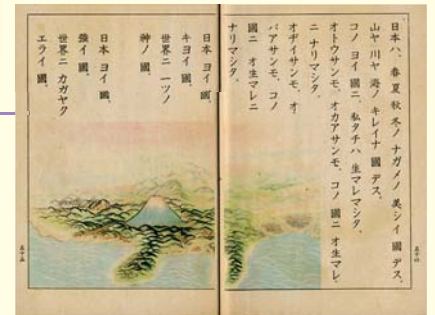 日本ハ、春夏秋冬ノ ナガメノ 美シイ 國 デス。
山ヤ 川ヤ 海ノ キレイナ 國 デス。
コノ ヨイ 國ニ、私タチハ 生マレマシタ。
オトウサンモ、オカアサンモ、コノ 國ニ オ生マレ
ニ ナリマシタ。
オヂイサンモ、オ
バアサンモ、コノ
國ニ オ生マレニ
ナリマシタ。
日本 ヨイ 國、
キヨイ 國。
世界ニ 一ツノ
神ノ 國。
日本 ヨイ 國、
強イ 國。
世界ニ カガヤク
エライ 國。